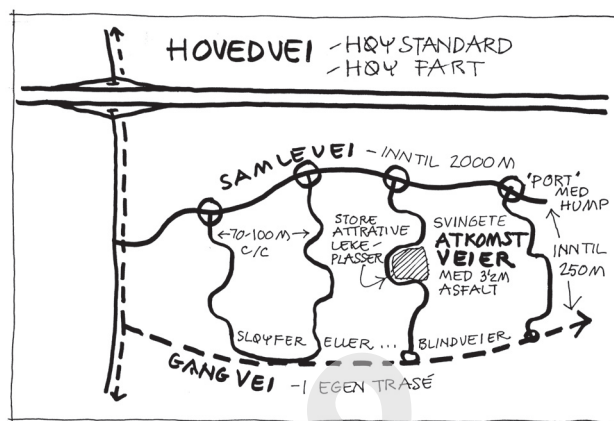 HOVEDVEI - HØY STANDARD
- HØY FART
SAMLEVEI - INNTIL 2000 M
"PORT"
MED
HUMP
←70-100 M→
C/C
STORE
ATTRATIVE
LEKE-
PLASSER
SVINGETE
ATKOMST
VEIER
MED 3½M
ASFALT
INNTIL
250M
SLØYFER ELLER... BLINDVEIER
GANGVEI - I EGEN TRASÉ